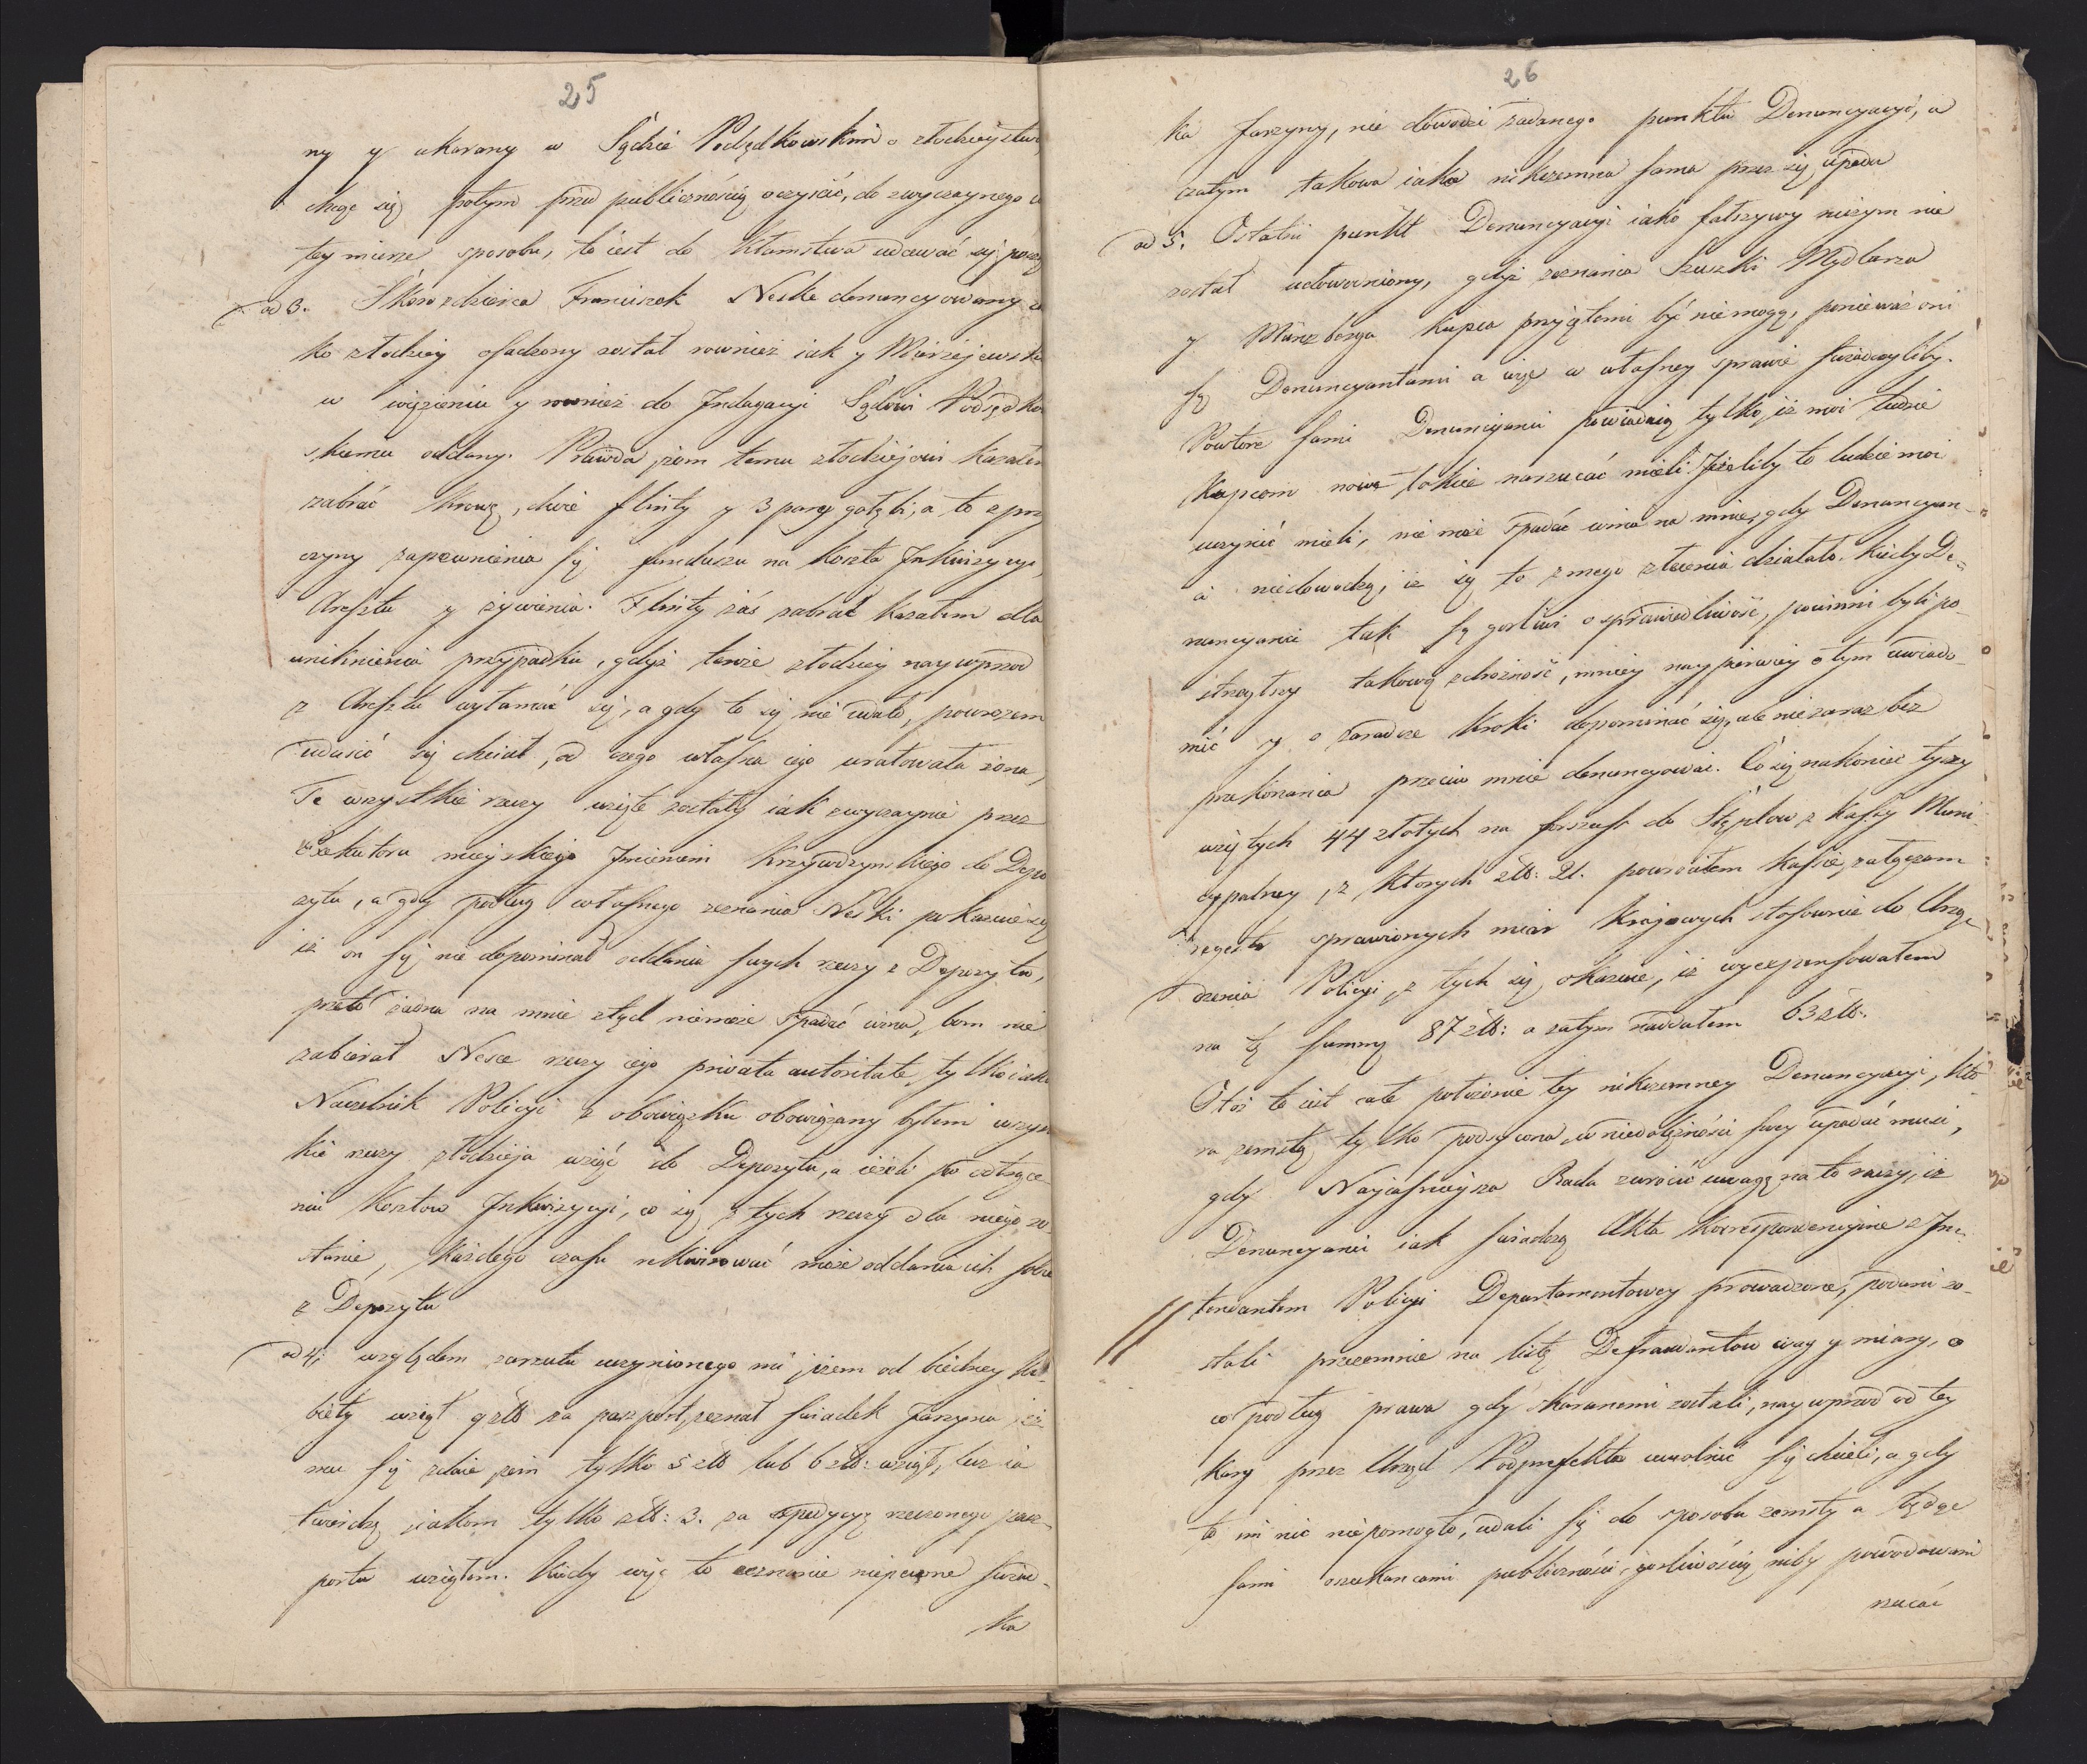 25
ny y ukarany w Sądzie Podsędkowskim o złodzieystwo
chcąc się potym przed publicznością oczyścić, do zwyczaynego w
tey mierze sposobu, to iest do kłamstwa udawać się
ad 3. Skorozdzierca Franciszek Neske denuncyowany ia
ko złodziey osadzony został rownież iak y Maciejewski
w więzieniu y rownież do Indagacyi Sądowi Podsędko
skiemu oddany. Prawda, żem temu złodziejowi kazałem
zabrać krowę, dwie flinty y 3 pary gołębi, a to z przy
czyny zapewnienia się funduszu na koszta Inkwizycyi,
Aresztu y żywienia. Flinty zaś zabrać kazałem dla
uniknienia przypadku, gdyż tenże złodziey naywprzod
z Aresztu wyłamać się, a gdy to się nie udało, powrozem
udusić się chciał, od czego własna iego uratowała żona,
Te wszystkie rzeczy wzięte zostały iak zwyczaynie przez
Exekutora mieyskiego Imieniem Krzywdzynskiego do Depo
zytu, a gdy podług własnego zeznania Neski pokazuie się
iż on się nie dopominał oddania swych rzeczy z Depozytu,
przeto żadna na mnie ztąd niemoże spadać wina, bom nie
zabierał Nesce rzeczy iego privata autoritate, tylko iako
Naczelnik Policyi z obowiązku obowiązany byłem wszys
kie rzeczy złodzieja wziąć do Depozytu, a ieżeli po odtrące
niu kosztow Inkwizycyi, co się z tych rzeczy dla niego zo
stanie, każdego czasu rekwirować może oddania ich sobie
z Depozytu
ad 4; względem zarzutu uczynionego mi jżem od biedney ko
biety wziął 9 złł za paszport, zeznał świadek Jarzyna, iż
mu się zdaie, żem tylko 5 złł lub 6 złł: wziął, lecz ia
twierdzę, iakom tylko złł: 3. za expedycyą rzeczonego pasz
portu wziąłem. Kiedy więc to zeznanie niepewne świad
ka
26
ka Jarzyny, nie dowodzi zadanego punktu Denuncyacyi, a
zatym takowa iako nikczemna sama przez się upada
ad 5. Ostatni punkt Denuncyacyi iako fałszywy niczym nie
został udowodniony, gdyż zeznania Szuszki Mydlarza
y Münzberga kupca przyjętemi być niemogą, ponieważ oni
są Denuncyantami a więc w własney sprawie świadczyliby.
Powtore sami Denuncyanci powiadaią tylko, iż moi ludzie
kupcom nowe łokcie narzucać mieli. Jeżeliby to ludzie moi
uczynić mieli, nie może spadać wina na mnie, gdy Denuncyan
ci niedowodzą, iż się to z mego zlecenia działało. Kiedy De
nuncyanci tak są gorliwi o sprawiedliwość, powinni byli po
strzegłszy takową zdrożność, mniey naypierwiey o tym uwiado
mić y o zaradcze kroki dopominać się, ale nie zaraz bez
przekonania przeciw mnie denuncyować. Co się nakoniec tyczy
wziętych 44 złotych na forszus do Stęplow z kassy Muni
cypalney, z ktorych złł: 21. powrociłem kassie, załączam
regestr sprawionych miar krajowych stosownie do Urzą
dzenia Policyi, z tych się okazuie, iż wyexpensowałem
na tę summę 87 złł: a zatym naddałem 63 złł:
Otoż to iest całe położenie tey nikczemney Denuncyacyi, kto
ra zemstą tylko podsycona, w niedołężności swey upadać musi,
gdy Nayjaśnieysza Rada zwrocić uwagę na to raczy, iż
Denuncyanci iak świadczą Akta korrespondencyjne z In
tendantem Policyi Departamentowey prowadzone, podani zo
stali przezemnie na listę Defraudantow wag y miary, o
co podług prawa gdy skaranemi zostali, naywprzod od tey
kary przez Urząd Podprefekta uwolnić się chcieli, a gdy
to im nic niepomogło, udali się do sposobu zemsty a będąc
sami oszukancami publiczności, gorliwością niby powodowani
rzucać